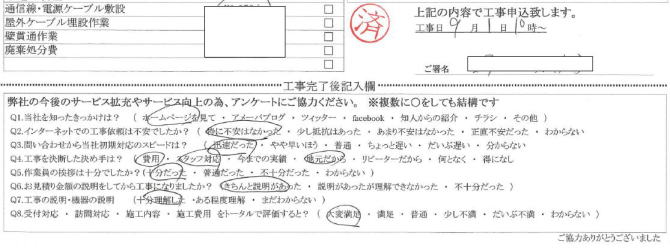 通信線・電源ケーブル敷設
屋外ケーブル埋設作業
壁貫通作業
廃棄処分費
済
上記の内容で工事申込致します。
工事日 9月1日10時~
ご署名
工事完了後記入欄
弊社の今後のサービス拡充やサービス向上の為、アンケートにご協力ください。 ※複数に〇をしても結構です
Q1.当社を知ったきっかけは？（ ホームページを見て ・ アメーバブログ ・ ツィッター ・ facebook ・ 知人からの紹介 ・ チラシ ・ その他 ）
Q2.インターネットでの工事依頼は不安でしたか？（ 特に不安はなかった ・ 少し抵抗はあった ・ あまり不安はなかった ・ 正直不安だった ・ わからない
Q3.問い合わせから当社初期対応のスピードは？（ 迅速だった ・ やや早いほう ・ 普通 ・ ちょっと遅い ・ だいぶ遅い ・ 分からない
Q4.工事を決断した決め手は？（ 費用 ・ スタッフ対応 ・ 今までの実績 ・ 地元だから ・ リピーターだから ・ 何となく ・ 得になし
Q5.作業員の挨拶は十分でしたか？（十分だった ・ 普通だった ・ 不十分だった ・ わからない ）
Q6.お見積り金額の説明をしてから工事になりましたか？（きちんと説明があった ・ 説明があったが理解できなかった ・ 不十分だった ）
Q7.工事の説明・機器の説明 （十分理解した ・ある程度理解 ・ まだわからない）
Q8.受付対応 ・ 訪問対応 ・ 施工内容 ・ 施工費用 をトータルで評価すると？（ 大変満足 ・ 満足 ・ 普通 ・ 少し不満 ・ だいぶ不満 ・ わからない ）
ご協力ありがとうございました